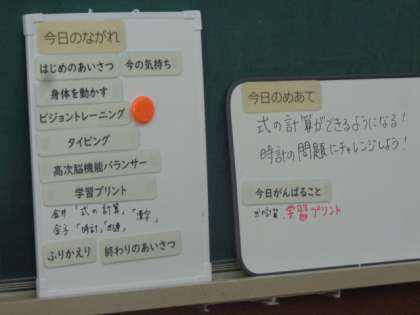 今日のながれ
はじめのあいさつ 今の気持ち
身体を動かす
ビジョントレーニング
タイピング
高次脳機能バランサー
学習プリント
金井「式の計算」「漢字」
金子「時計」
ふりかえり 終わりのあいさつ
今日のめあて
式の計算ができるようになる!
時計の問題にチャレンジしよう!
今日がんばること
学習プリント